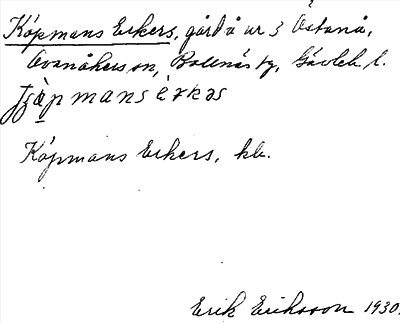 Köpmans Erkers, gård å nr 3 Östanå,
Ovanåkers sn, Bollnäs tg, Gävleb. l.
mans èrkəs
Köpmans Erkers, kb.
Erik Eriksson 1930.